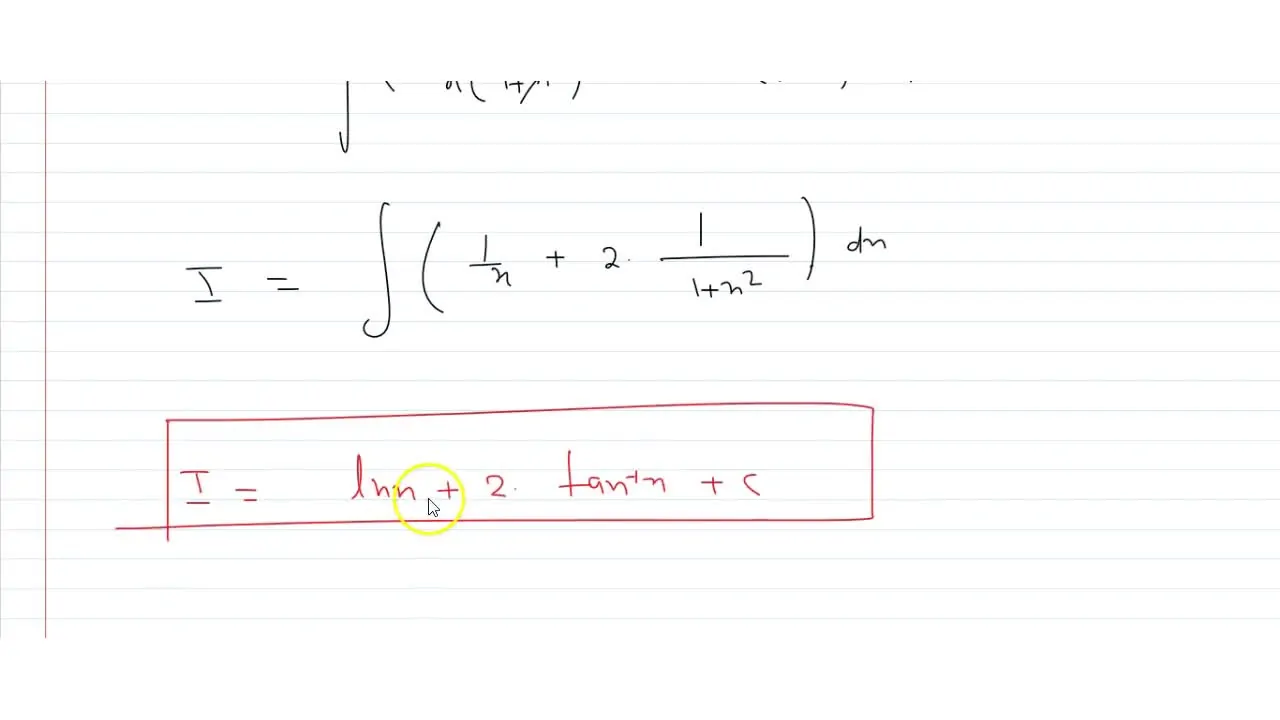 I = ∫ ( 1/x + 2. 1/(1+x²) ) dx
I = ln x + 2. tan⁻¹x + c